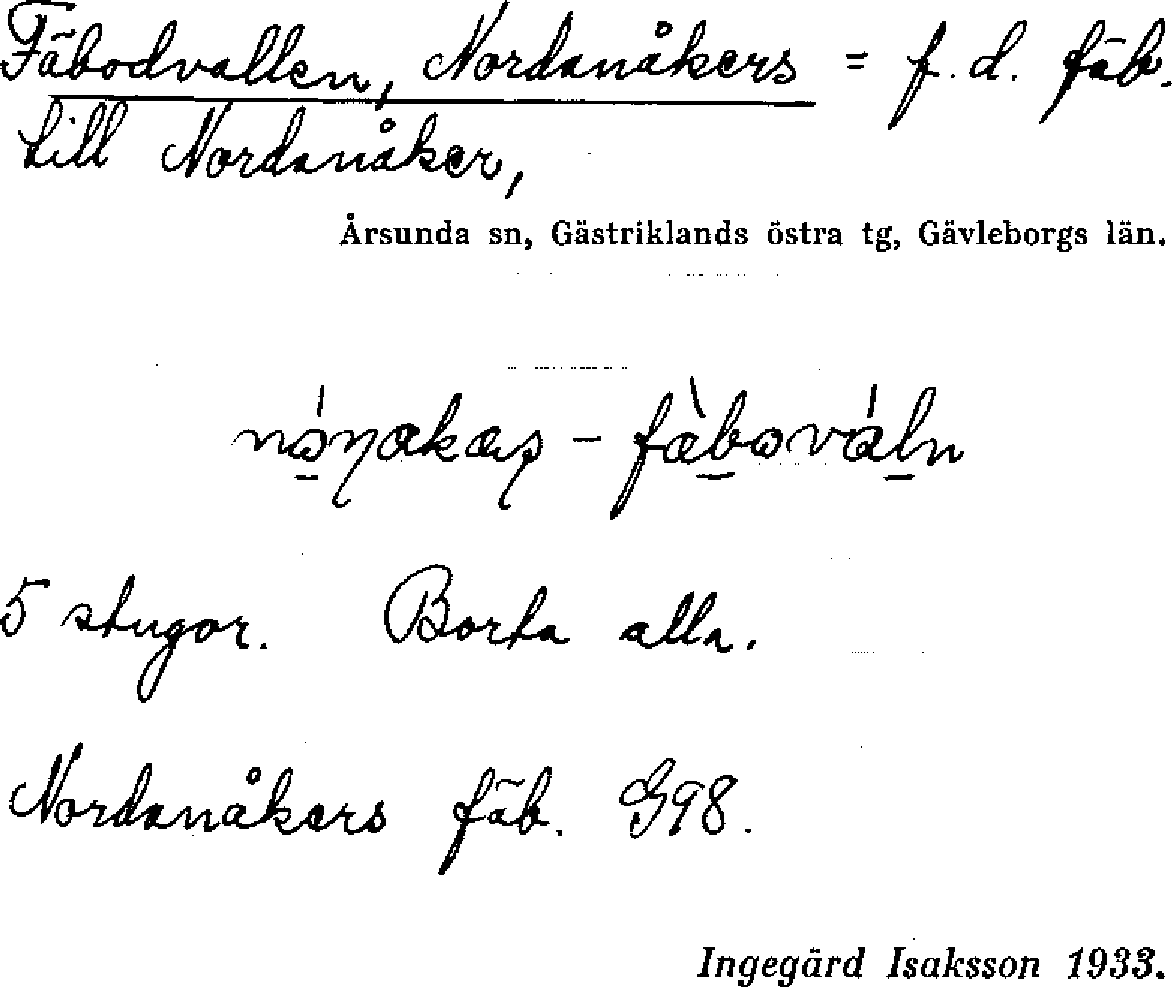 Fäbodvallen, Nordanåkers = f.d. fäb.
till Nordanåker,
Årsunda sn, Gästriklands östra tg, Gävleborgs län.
5 stugor. Borta alla.
Nordanåkers fäb. G98.
Ingegärd Isaksson 1933.